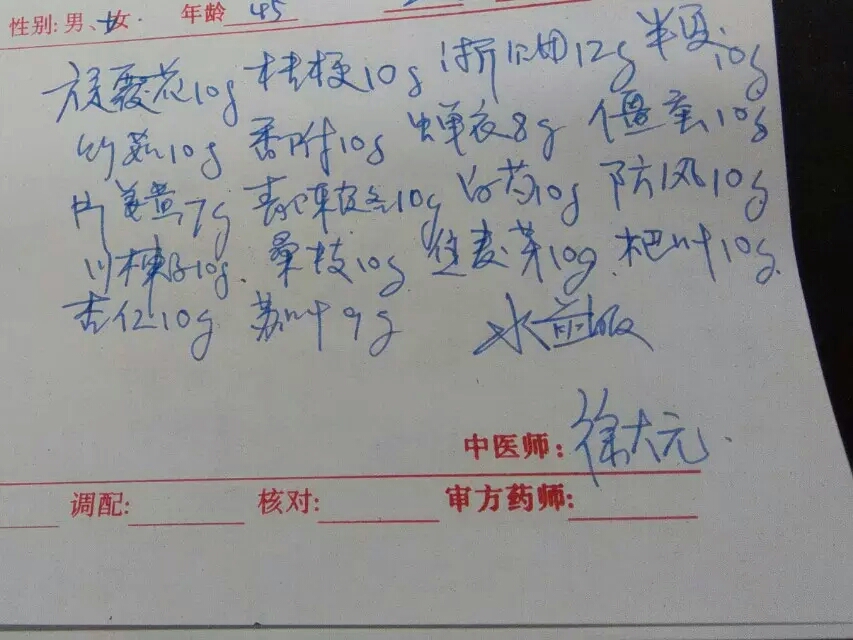 性别: 男、女. 年龄 45
旋覆花10g 桔梗10g 浙贝母12g 半夏10g
竹茹10g 香附10g 蝉衣8g 僵蚕10g
片姜黄7g 青陈皮各10g 白芍10g 防风10g
川楝子10g. 桑枝10g 生麦芽10g 杷叶10g.
杏仁10g 苏叶9g 水煎服
中医师: 徐大元.
调配: 核对: 审方药师: